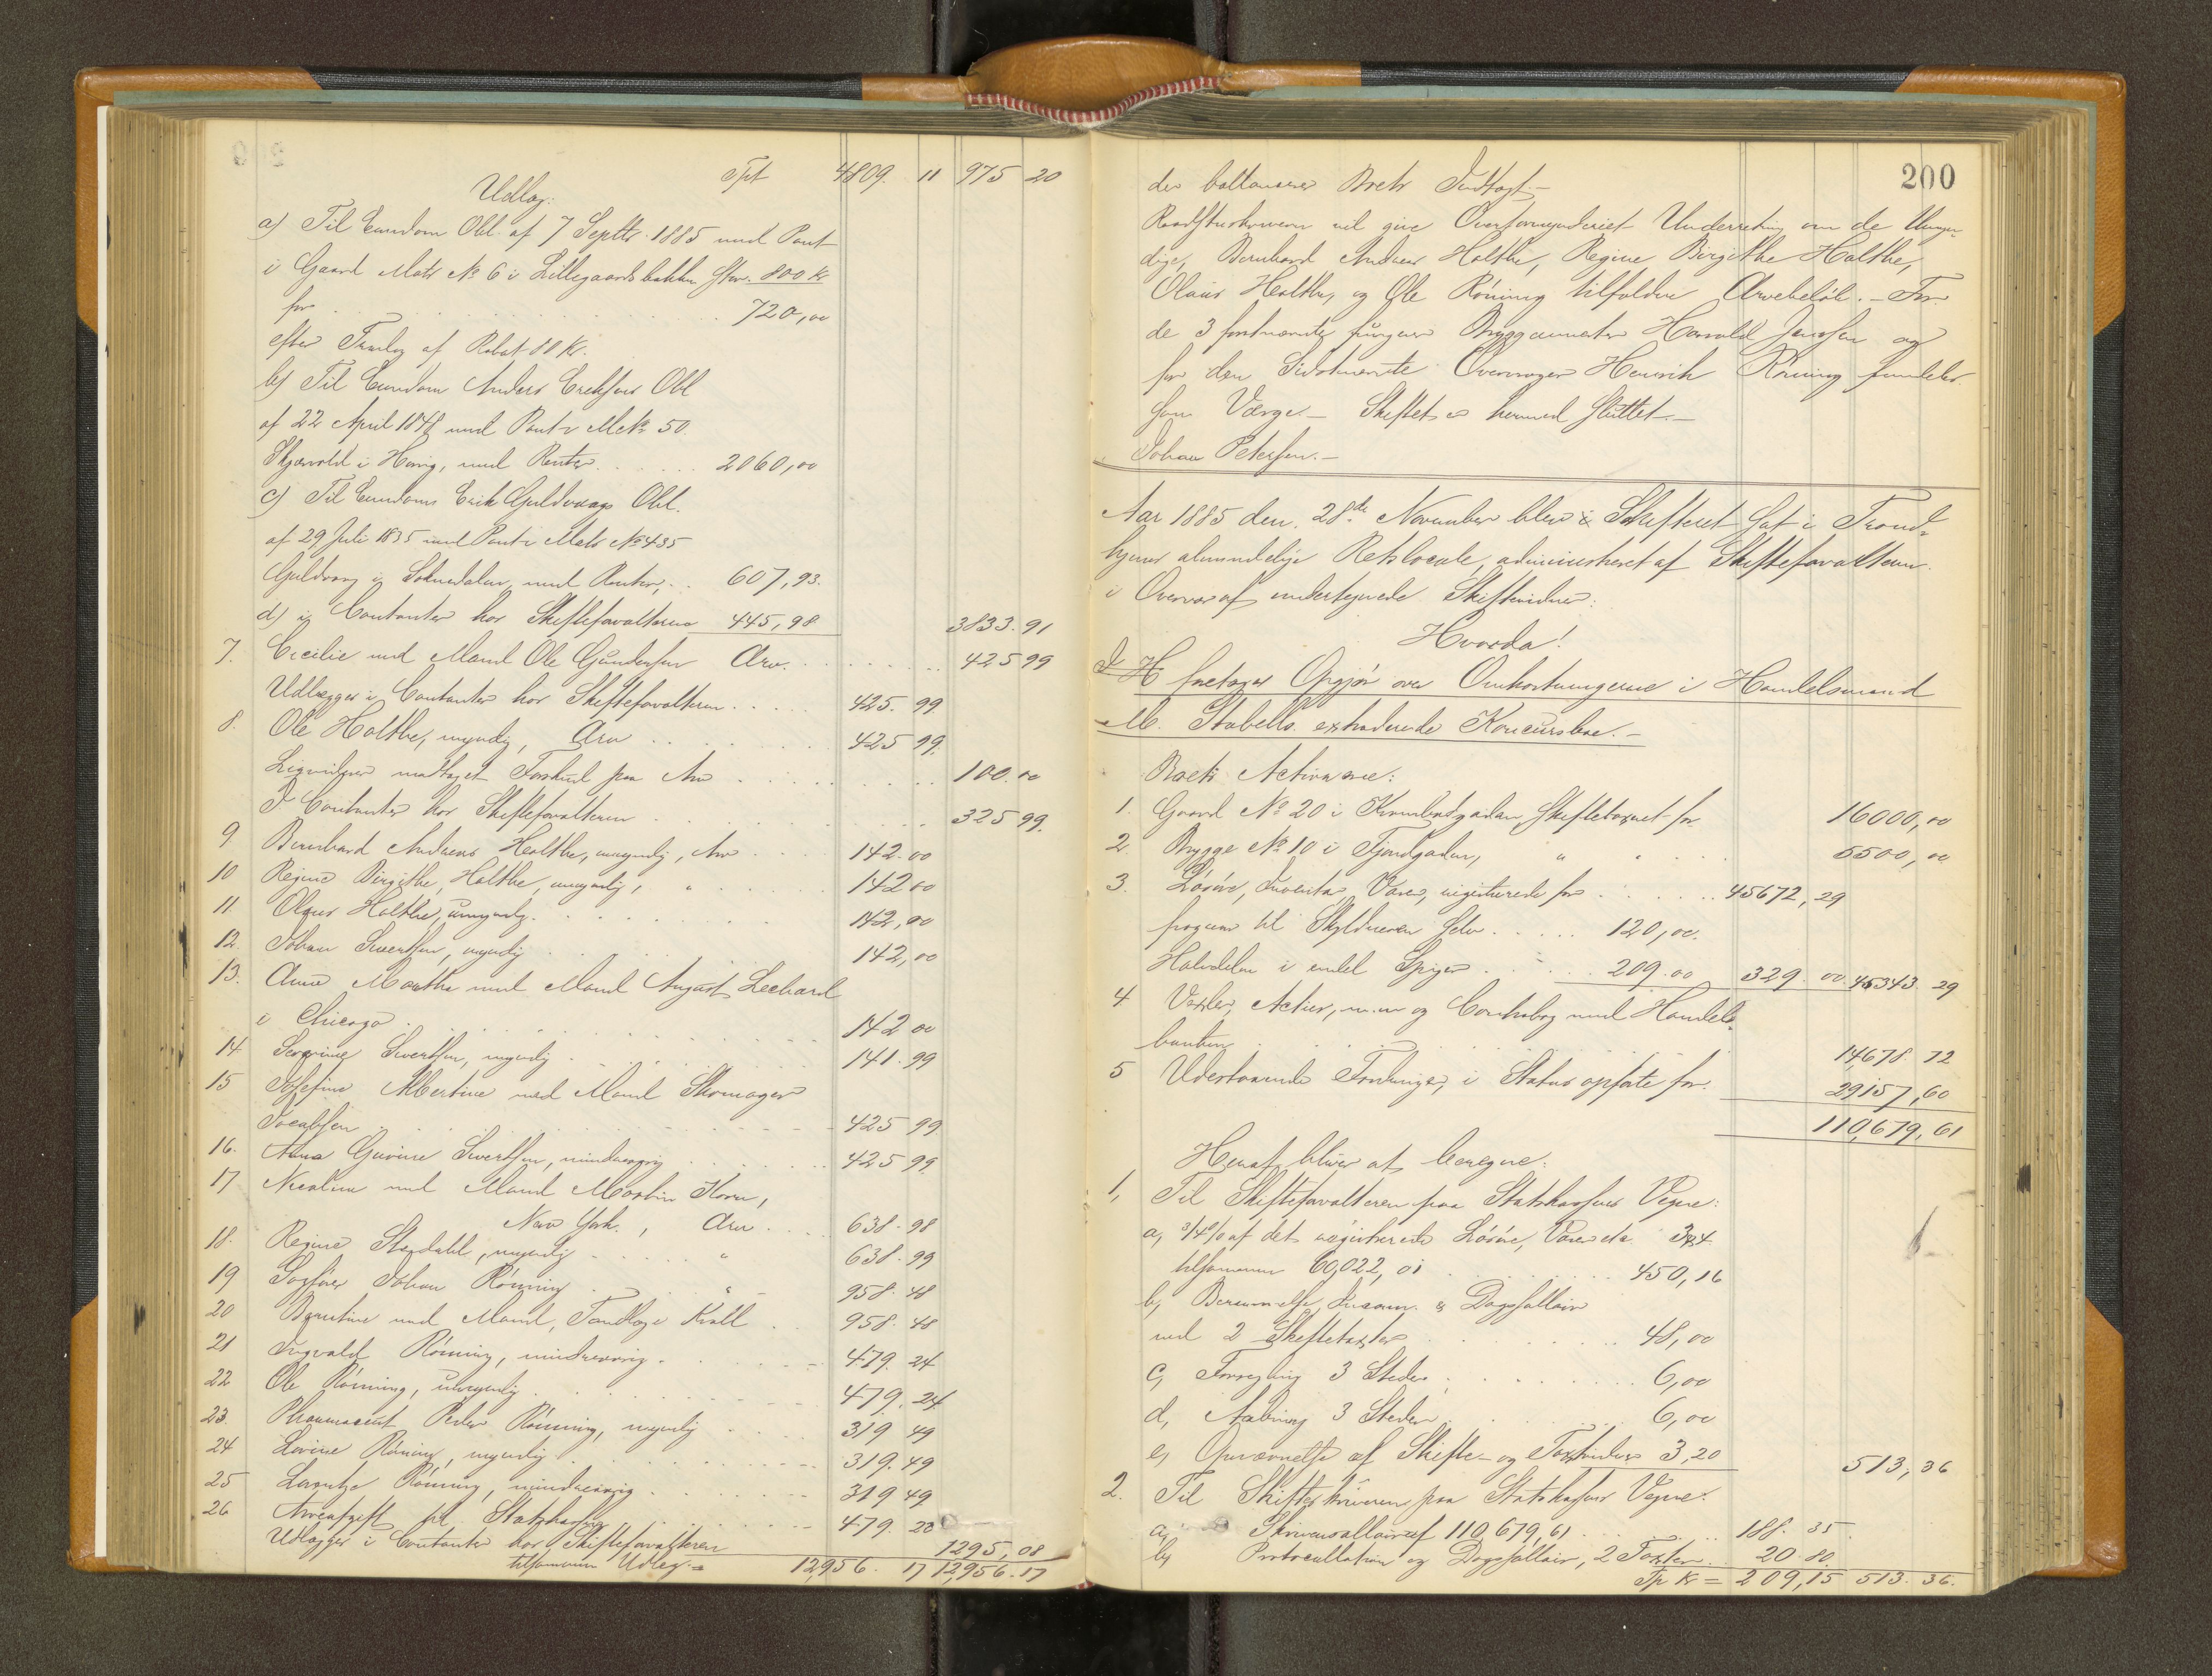 Tpt 4809. 11 975 20
Udlæg:
a) Til Eiendom Obl. af 7 Septbr. 1885 med Pant
i Gaard Matr No 6 i Lillegaardsbakken stor. 800 Kr
for . . . 720,00
efter Fradrag af Rabat 80 Kr.
b) Til Eiendom Anders Erichsens Obl
af 22 April 1848 med Pant i Matr 50.
Skjærvold i Horrig, med Renter . . . 2060,00
c) Til Eiendoms Erik Guldvaags Obl.
af 29 Juli 1835 med Pant i Matr No 435
Guldvaag i Soknedalen, med Renter, . . 607,93.
d) i Contanter hos Skifteforvalteren 445,98 3833.91
7. Cecilie med Mand Ole Gundersen Arv. . . . 425 99
Udlægges i Contanter hos Skifteforvalteren . . . 425. 99.
8. Ole Holthe, myndig, Arv . . . 425 99.
Liqvideres modtaget Forskud paa Arv . . . 100.00
I Contanter hos Skifteforvalteren . . . 325 99.
9 Bernhard Andreas Holthe, umyndig, Arv . . . 142.00
10 Regine Birgithe Holthe, umyndig, " . . . 142 00
11. Olaus Holthe, umyndig. . . . 142,00
12. Johan Sivertsen, myndig . . . 142,00
13. Anne Marthe med Mand August Lechard
i Chicago . . . 142 00
14 Severine Sivertsen, myndig . . . 141.99
15 Josefine Albertine med Mand Skomager
Jacobsen . . . 425 99.
16. Anna Gurine Sivertsen, mindreaarig . . . 425 99
17 Nicoline med Mand Martin Korn,
New York., Arv . . . 638.98
18. Regine Stendahl, myndig . . . " 638.99
19 Sagfører Johan Rønning . . . " 958.48
20 Berntine med Mand, Tandlæge Krall . . . 958.48
21 Ingvald Rønning, mindreaarig. . . . 479.24
22 Ole Rønning, umyndig . . . 479.24
23. Pharmaceut Peder Rønning, myndig . . . 319 49
24 Lovise Rønning, myndig . . . 319.49
25 Lorentze Rønning, mindreaarig . . . 319 49
26 Arveafgift til Statskassen . . . 479.28
Udlægges i Contanter hos Skifteforvalteren 1295,08
tilsammen Udlæg = 12,956. 17 12,956.17
200
des balancerer Boets Indtægt. –
Raadstueskriveren vil give Overformynderiet Underretning om de Umyn-
dige, Bernhard Andreas Holthe, Regine Birgithe Holthe,
Olaus Holthe, og Ole Rønning tilfaldne Arvebeløb. – For
de 3 førstnævnte fungerer Bryggearbeider Harald Jensen og
for den Sidstnævnte Overvrager Henrik Rønning fremdeles
som Værge. – Skiftet er hermed sluttet. –
Johan Petersen. –
Aar 1885 den 28de November blev Skifteret sat i Trond-
hjems almindelige Retslocale, administreret af Skifteforvalteren
i Overvær af undertegnede Skiftevidner:
Hvorda!
I H foretages Opgjør over Omkostningerne i Handelsmand
M. Stabells extraderede Koncursbo. –
Boets Activa ere:
1. Gaard No 20 i Krambodgaden, Skiftetaxeret for 16000,00
2. Brygge No 10 i Fjordgaden, " " . . 5500,00
3. Løsøre, Inventar, Varer, registrerede for . . . 45672,29
fragaar til Skyldneren selv . . . 120,00.
Halvdelen i endel Spiger . . . 209.00 329. 00. 45343. 29
4 Vexler, Actier, m.m og Contrabog med Handels-
banken . . . 14,678.72
5 Udestaaende Fordringer, i Status opførte for. 29157,60
110,679,61
Heraf bliver at beregne:
1, Til Skifteforvalteren paa Statskassens Vegne:
a, 3/4 % af det registrerede Løsøre, Varer etc 3 & 4
tilsammen 60,022,01 . . . 450,16
b, Berammelse, Incam. & Dagsallair
ved 2 Skiftetaxter . . . 48,00
c, Forsegling 3 Steder . . . 6,00
d, Aabning 3 Steder . . . 6,00
e, Opnævnelse af Skifte- og Taxtvidner 3,20 513,36
2. Til Skifteskriveren paa Statskassens Vegne:
a, Skriversallair af 110,679,61 . . . 188. 35
b, Protocollation og Dagsallair, 2 Taxter . . 20.80.
Tp Kr = 209,15 513. 36.